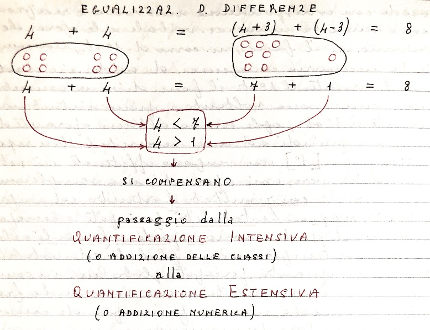 EGUALIZZAZ. D. DIFFERENZE
4 + 4 = (4+3) + (4-3) = 8
4 + 4 = 7 + 1 = 8
4 < 7
4 > 1
SI COMPENSANO
passaggio dalla
QUANTIFICAZIONE INTENSIVA
(O ADDIZIONE DELLE CLASSI)
alla
QUANTIFICAZIONE ESTENSIVA
(O ADDIZIONE NUMERICA)